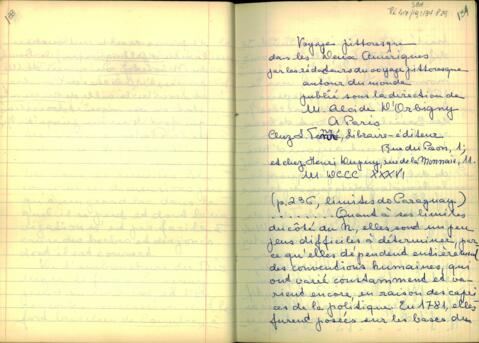 138
139
Voyage pittoresque
dans les Deux Amériques
par les rédacteurs du voyage pittoresque
autour du monde
publié sous la direction de
M. Alcide D'Orbigny
A Paris
Chez L. Tenré, Libraire-éditeur
Rue du Paon, 1;
et chez Henri Dupuy, rue de la Monnaie, 11.
M DCCC XXXVI
(p. 236, limites do Paraguay.)
........ Quant à ses limites
du côté du N., elles sont un peu
plus difficiles à déterminer, par
ce qu'elles dépendent entièrement
des conventions humaines, qui
ont varié constamment et va-
rient encore, en raison des capri
ces de la politique. En 1781, elles
furent posées sur les bases du